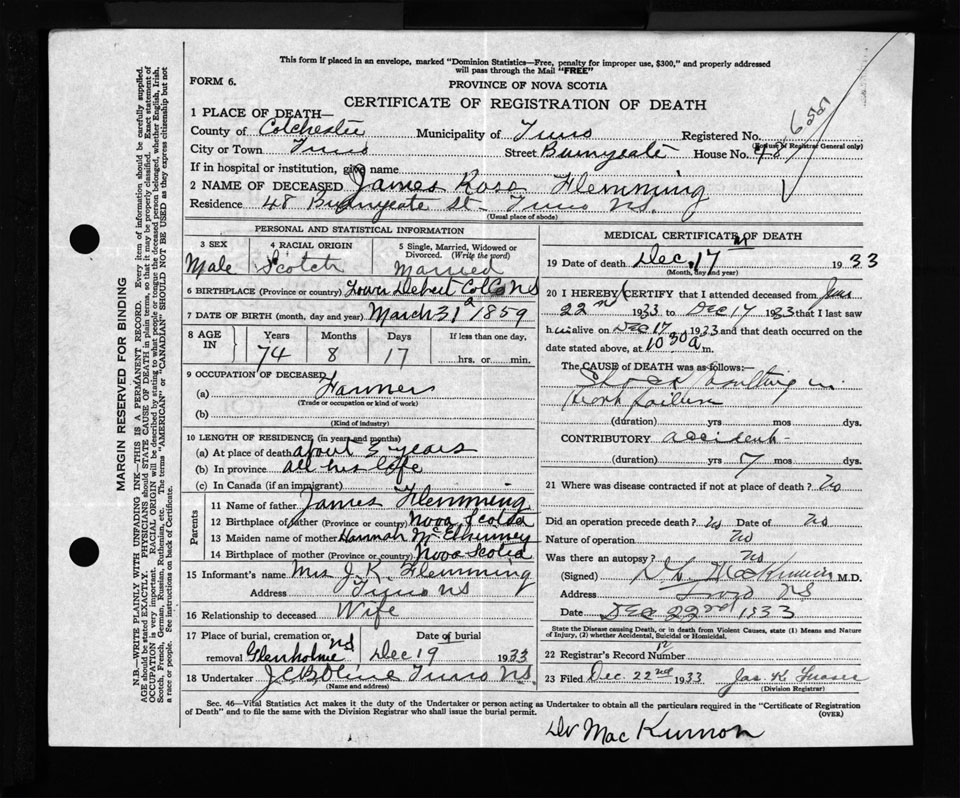 This form if placed in an envelope, marked "Dominion Statistics—Free, penalty for improper use, $300," and properly addressed
will pass through the Mail "FREE"
FORM 6.
PROVINCE OF NOVA SCOTIA
CERTIFICATE OF REGISTRATION OF DEATH
1 PLACE OF DEATH—
County of Colchester Municipality of Truro Registered No.
(For use of Registrar General only)
City or Town Truro Street Bunyeate House No. 48
If in hospital or institution, give name
2 NAME OF DECEASED James Ross Flemming
Residence 48 Bunyeate St. Truro NS.
(Usual place of abode)
PERSONAL AND STATISTICAL INFORMATION
3 SEX 4 RACIAL ORIGIN 5 Single, Married, Widowed or
Divorced. (Write the word)
Male Scotch Married
6 BIRTHPLACE (Province or country) Lower Debert Col Co NS
7 DATE OF BIRTH (month, day and year) March 31 1859
8 AGE IN Years Months Days If less than one day,
74 8 17 hrs. or min.
9 OCCUPATION OF DECEASED
(a) Farmer
(Trade or occupation or kind of work)
(b)
(Kind of industry)
10 LENGTH OF RESIDENCE (in years and months)
(a) At place of death about 3 years
(b) In province all his life
(c) In Canada (if an immigrant)
Parents
11 Name of father James Flemming
12 Birthplace of father (Province or country) Nova Scotia
13 Maiden name of mother Hannah
14 Birthplace of mother (Province or country) Nova Scotia
15 Informant's name Mrs J. R. Flemming
Address Truro NS
16 Relationship to deceased Wife
17 Place of burial, cremation or Date of burial
removal Glenholme NS Dec 19 1933
18 Undertaker Truro NS
(Name and address)
MEDICAL CERTIFICATE OF DEATH
19 Date of death Dec. 17th 1933
(Month, day and year)
20 I HEREBY CERTIFY that I attended deceased from June
22nd 1933 to Dec 17 1933 that I last saw
him alive on Dec 17 1933 and that death occurred on the
date stated above, at 10 30 a m.
The CAUSE of DEATH was as follows:—
Shock resulting in
Heart failure
(duration) yrs mos. dys.
CONTRIBUTORY accident
(duration) yrs 7 mos. dys.
21 Where was disease contracted if not at place of death? No
Did an operation precede death? No Date of No
Nature of operation No
Was there an autopsy? No
(Signed) MacKinnon M.D.
Address Truro NS
Date Dec 22nd 1933
State the Disease causing Death, or in death from Violent Causes, state (1) Means and Nature
of Injury, (2) whether Accidental, Suicidal or Homicidal.
22 Registrar's Record Number
23 Filed Dec. 22nd 1933 Jas K Fraser
(Division Registrar)
Sec. 46—Vital Statistics Act makes it the duty of the Undertaker or person acting as Undertaker to obtain all the particulars required in the "Certificate of Registration
of Death" and to file the same with the Division Registrar who shall issue the burial permit.
(OVER)
Dr MacKinnon
MARGIN RESERVED FOR BINDING
N.B.—WRITE PLAINLY WITH UNFADING INK—THIS IS A PERMANENT RECORD. Every item of information should be carefully supplied.
AGE should be stated EXACTLY. PHYSICIANS should STATE CAUSE OF DEATH in plain terms, so that it may be properly classified. Exact statement of
OCCUPATION is very important. RACIAL ORIGIN will be described by stating to what people or tongue the deceased person belonged, whether English, Irish,
Scotch, French, German, Russian, Ruthenian, etc. The terms "AMERICAN" or "CANADIAN" SHOULD NOT BE USED as they express citizenship but not
a race or people. See instructions on back of Certificate.